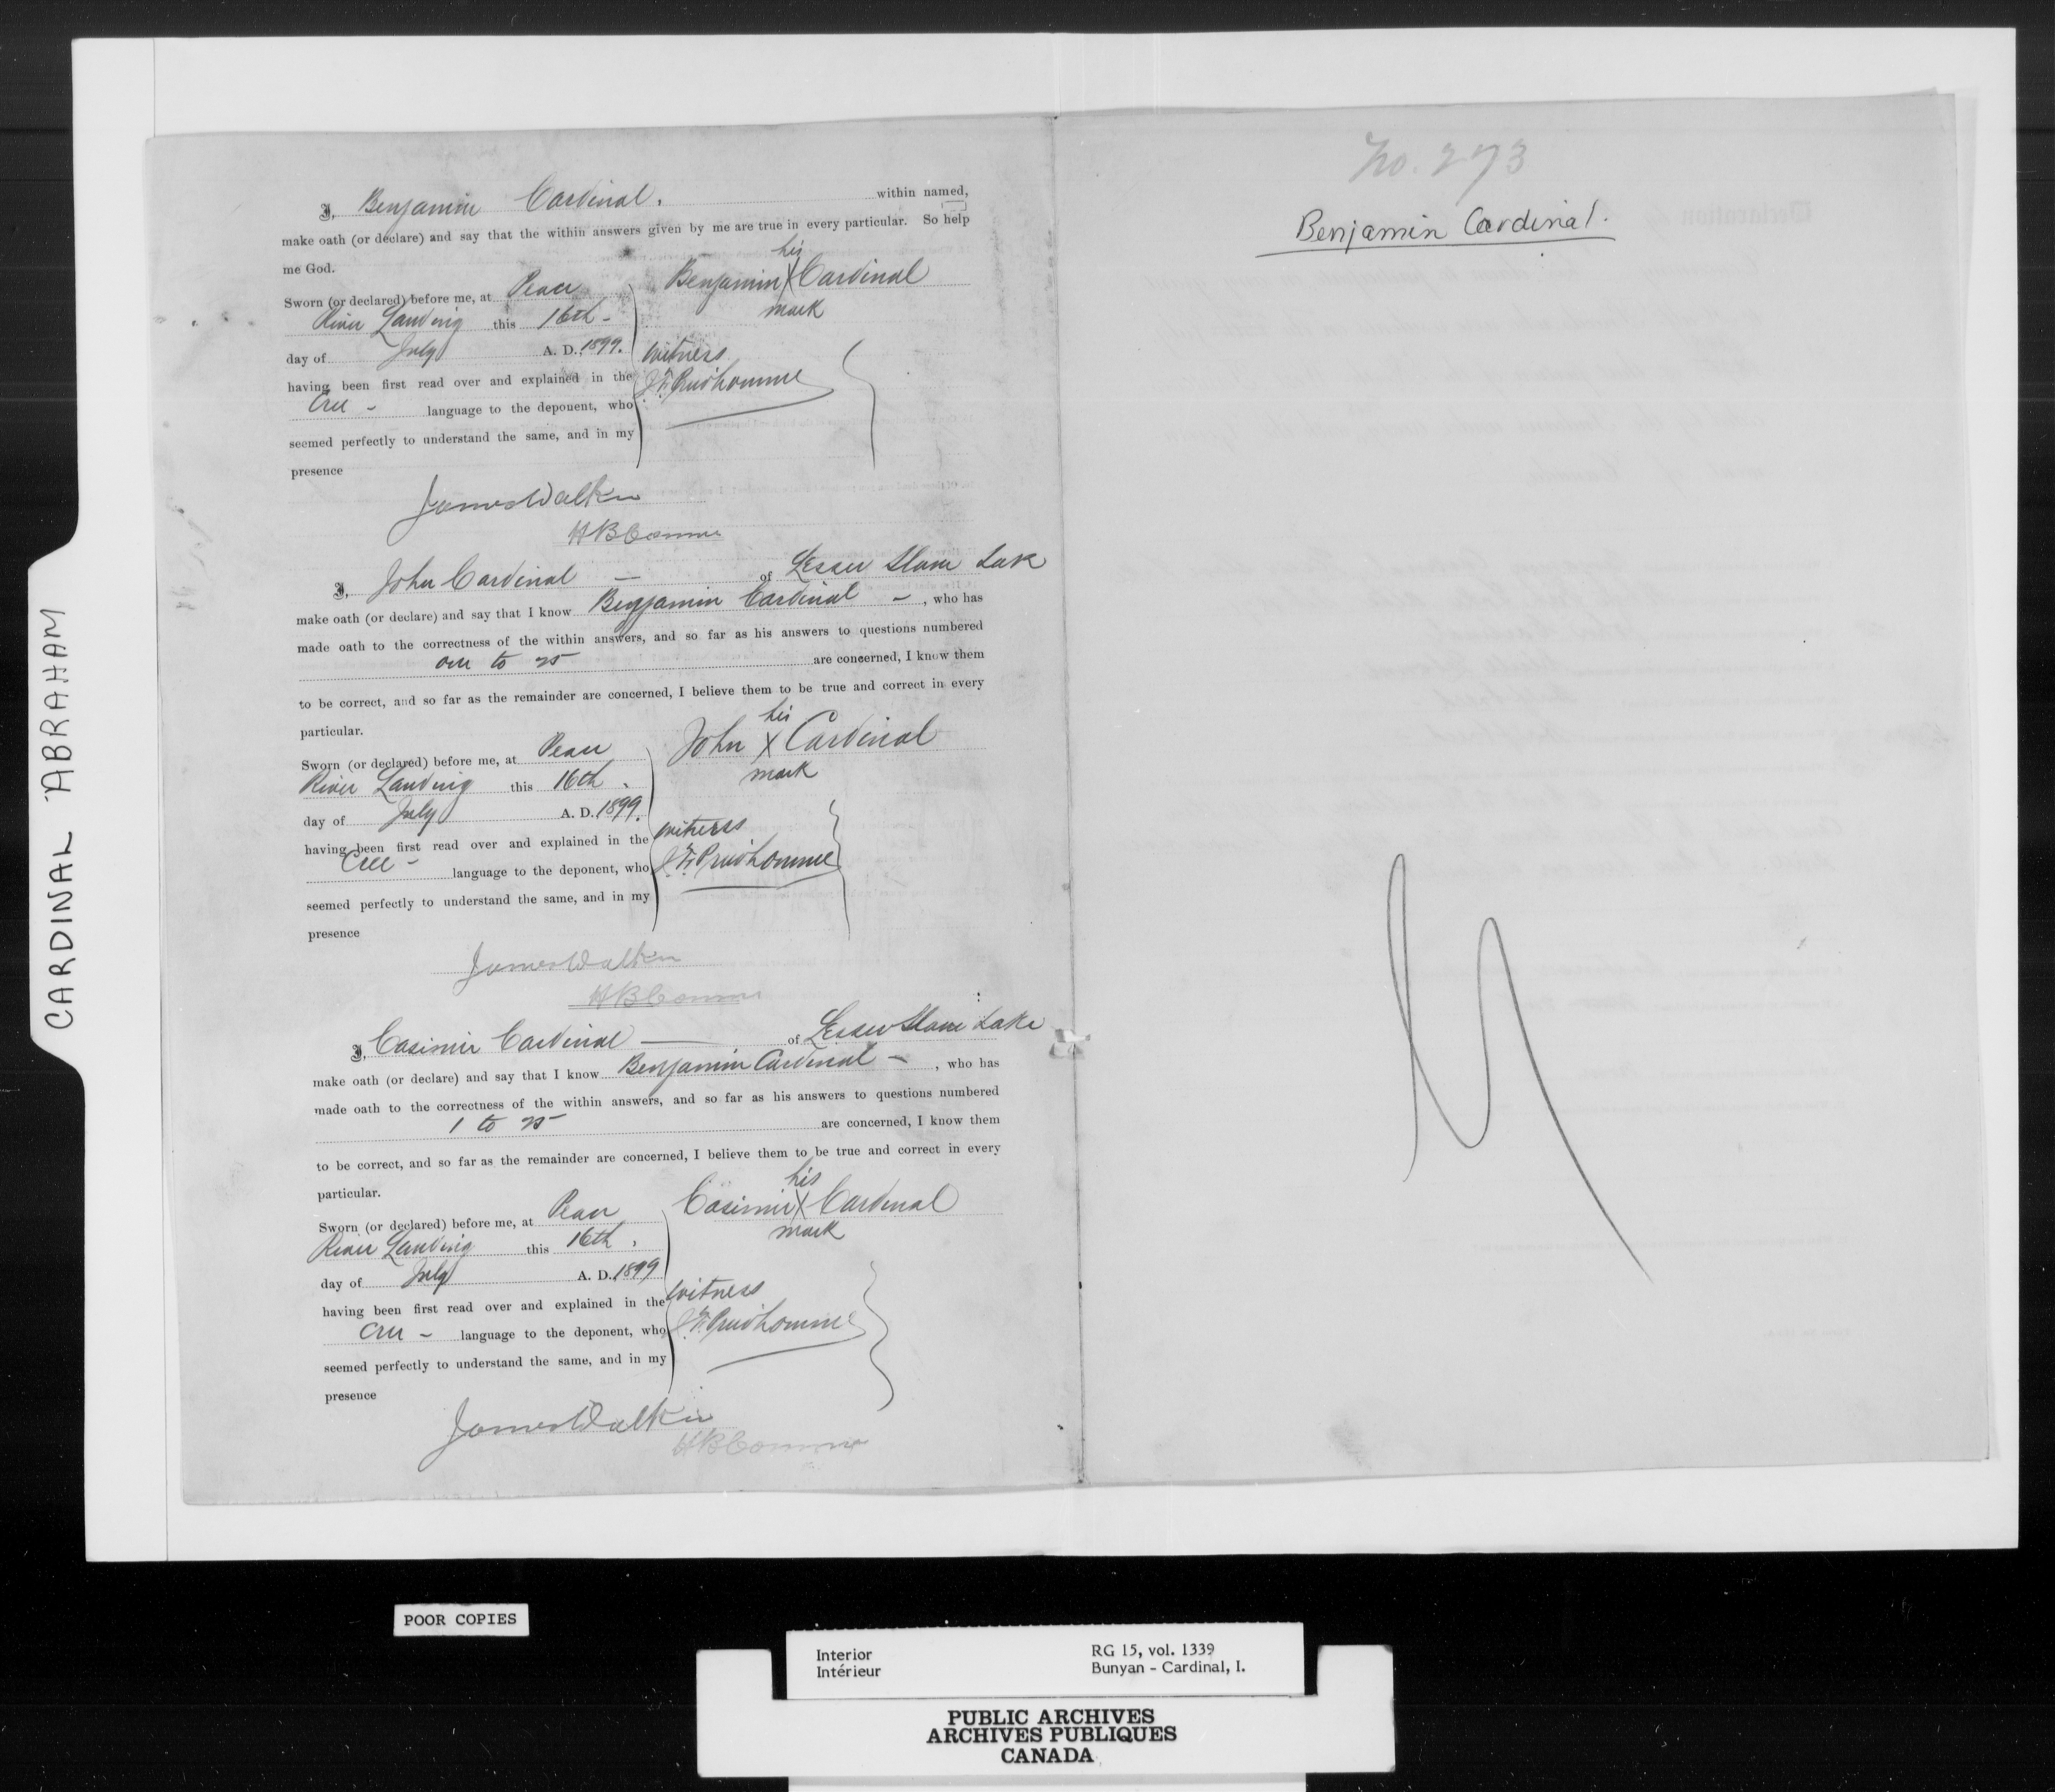 CARDINAL ABRAHAM
I, Benjamin Cardinal. within named,
make oath (or declare) and say that the within answers given by me are true in every particular. So help
me God.
Sworn (or declared) before me, at Peace
River Landing this 16th
day of July A. D. 1899.
having been first read over and explained in the
Cree - language to the deponent, who
seemed perfectly to understand the same, and in my
presence
his
Benjamin X Cardinal
mark
witness
J. F. Prudhomme
James Walker
I, John Cardinal — of Lesser Slave Lake
make oath (or declare) and say that I know Benjamin Cardinal - , who has
made oath to the correctness of the within answers, and so far as his answers to questions numbered
one to 25 are concerned, I know them
to be correct, and so far as the remainder are concerned, I believe them to be true and correct in every
particular.
Sworn (or declared) before me, at Peace
River Landing this 16th.
day of July A. D. 1899.
having been first read over and explained in the
Cree - language to the deponent, who
seemed perfectly to understand the same, and in my
presence
his
John X Cardinal
mark
witness
J. F. Prudhomme
James Walker
I, Casimir Cardinal — of Lesser Slave Lake
make oath (or declare) and say that I know Benjamin Cardinal - , who has
made oath to the correctness of the within answers, and so far as his answers to questions numbered
1 to 25 are concerned, I know them
to be correct, and so far as the remainder are concerned, I believe them to be true and correct in every
particular.
Sworn (or declared) before me, at Peace
River Landing this 16th,
day of July A. D. 1899
having been first read over and explained in the
Cree - language to the deponent, who
seemed perfectly to understand the same, and in my
presence
his
Casimir X Cardinal
mark
witness
J. F. Prudhomme
James Walker
No. 273
Benjamin Cardinal.
POOR COPIES
Interior RG 15, vol. 1339
Intérieur Bunyan - Cardinal, I.
PUBLIC ARCHIVES
ARCHIVES PUBLIQUES
CANADA